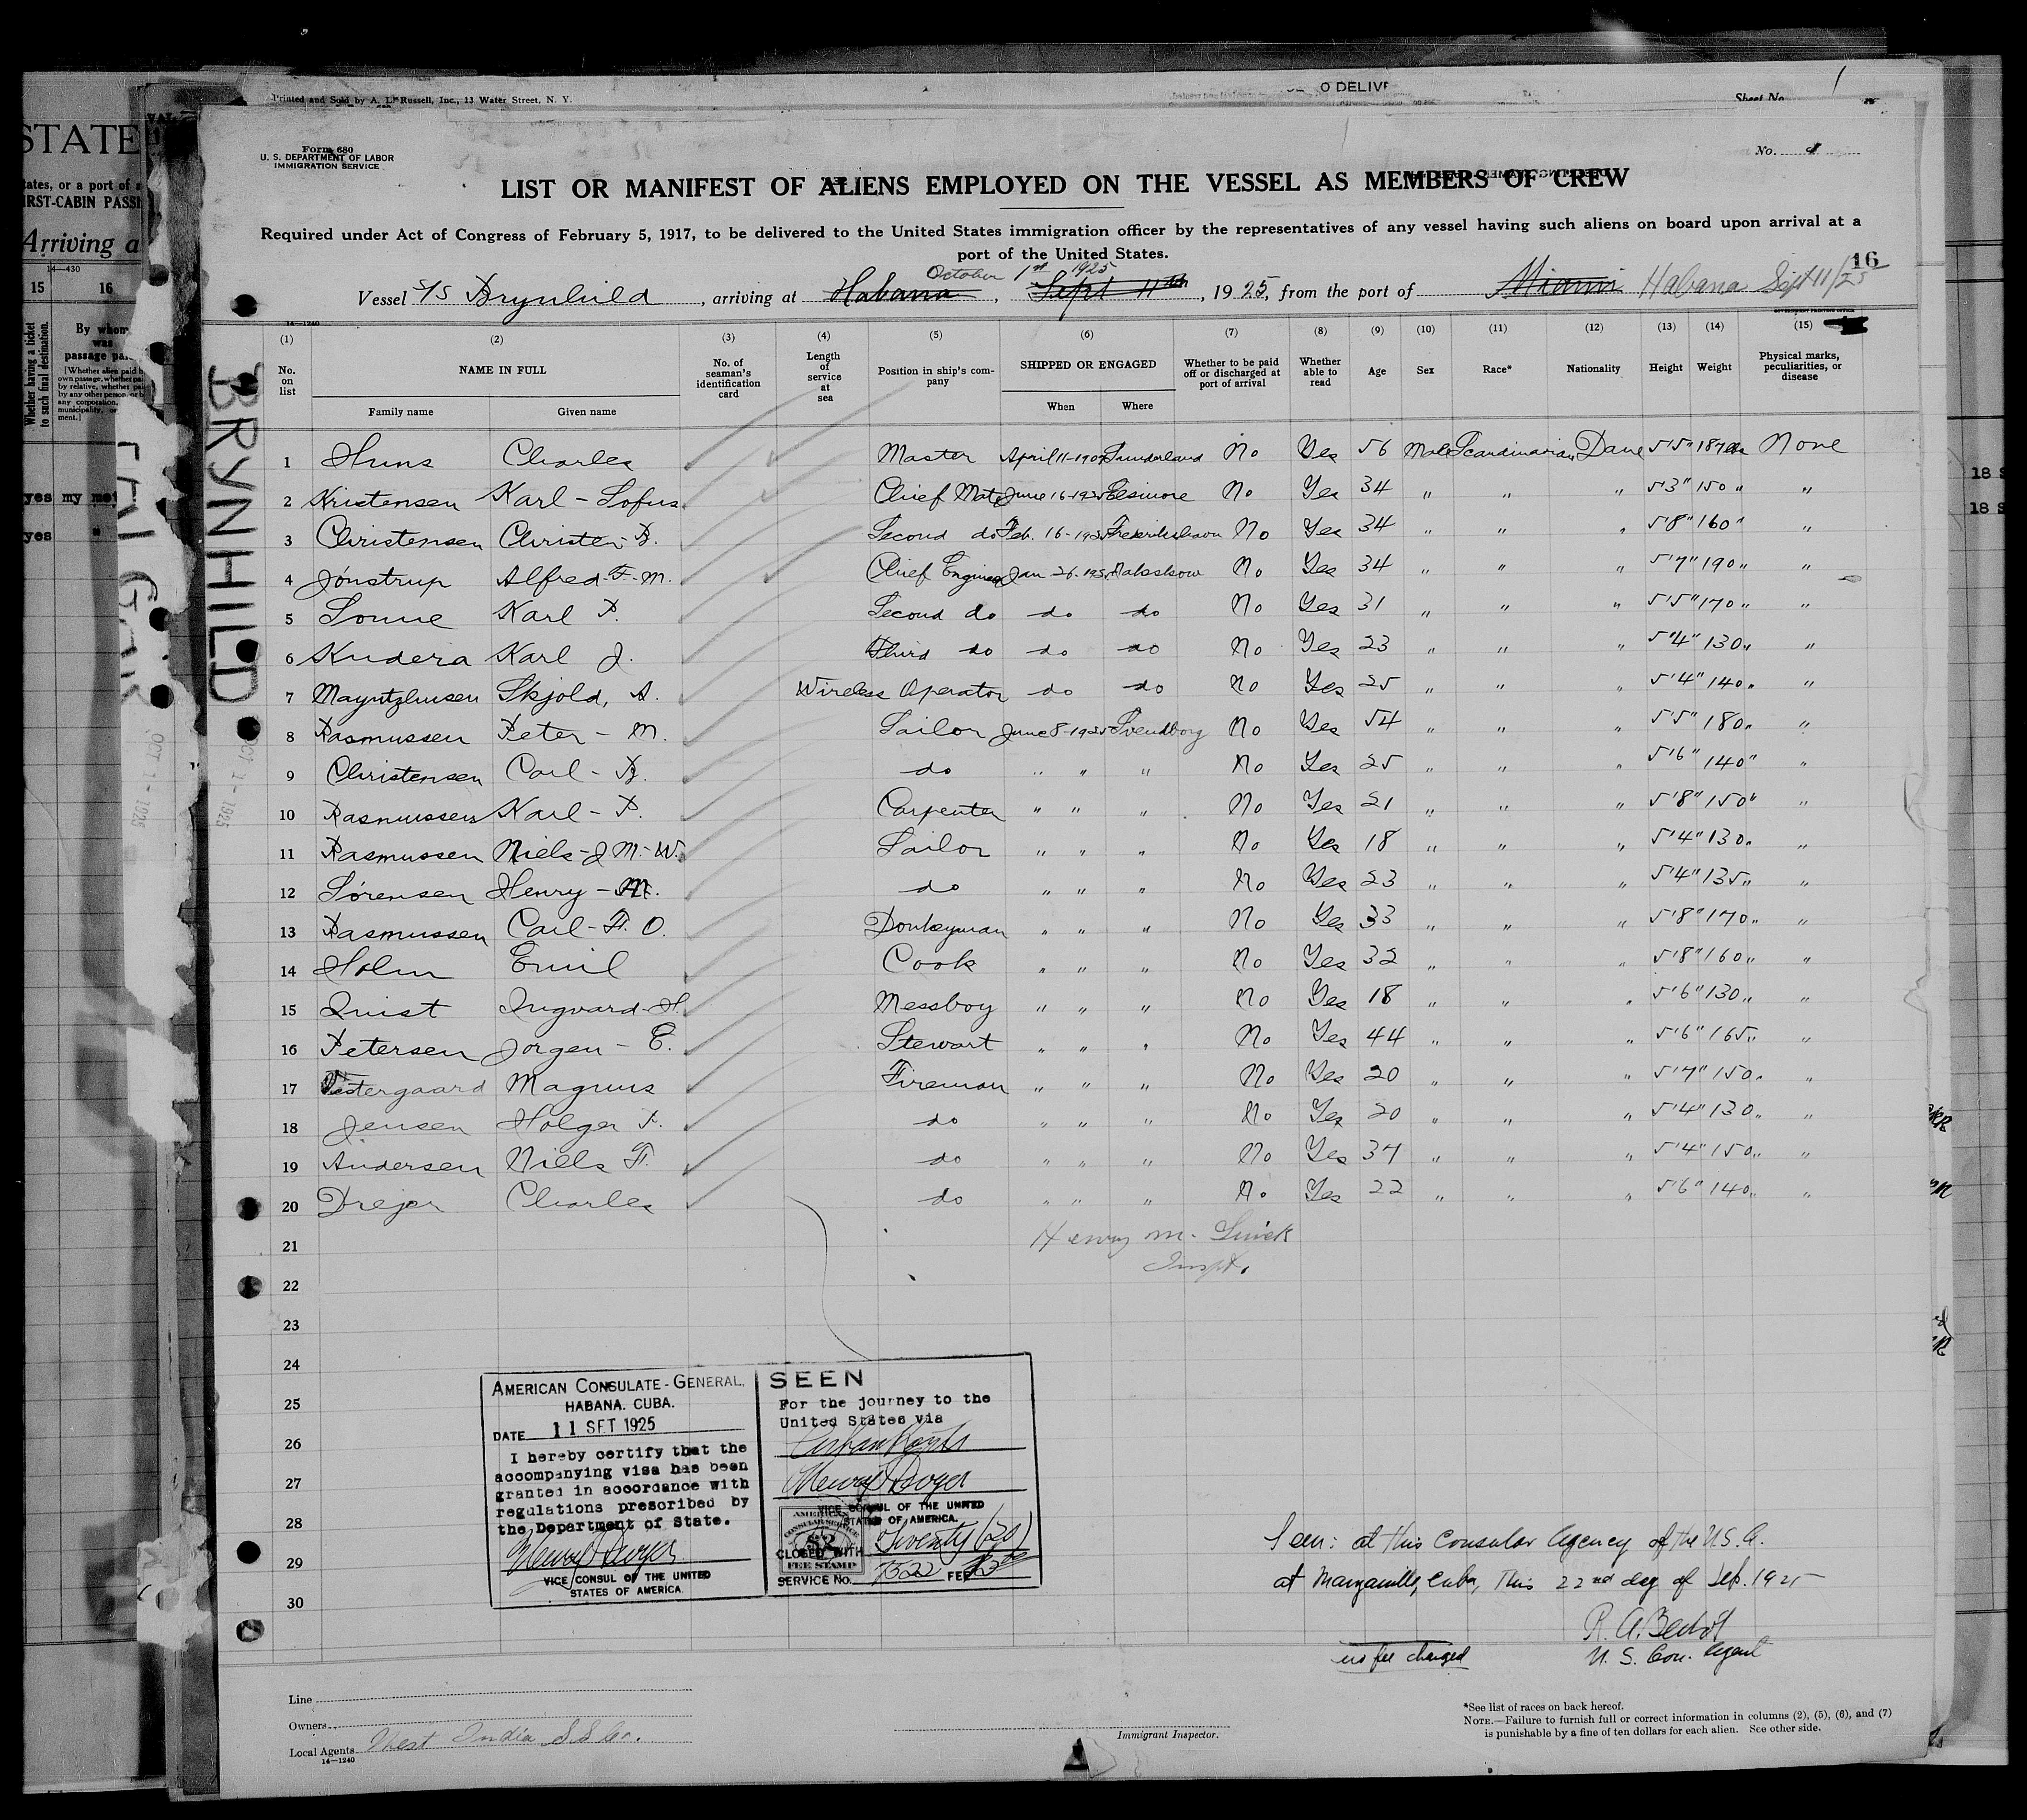 STATE
tates, or a port of a
IRST-CABIN PASSE
Arriving a
14—430
15 16
Whether having a ticket to such final destination.
By whom was passage paid
yes my
yes "
BRYNHILD
OCT 1 - 1925
OCT 1 - 1925
Printed and Sold by A. L. Russell, Inc., 13 Water Street, N. Y.
O DELIVE
Sheet No.
Form 680
U. S. DEPARTMENT OF LABOR
IMMIGRATION SERVICE
No. 1
LIST OR MANIFEST OF ALIENS EMPLOYED ON THE VESSEL AS MEMBERS OF CREW
Required under Act of Congress of February 5, 1917, to be delivered to the United States immigration officer by the representatives of any vessel having such aliens on board upon arrival at a
port of the United States.
16
October 1st 1925
Vessel S/S Brynhild, arriving at Habana, Sept 11th, 1925, from the port of Miami Habana Sept 11/25
14—1240
(1) (2) (3) (4) (5) (6) (7) (8) (9) (10) (11) (12) (13) (14) (15)
No. on list
NAME IN FULL
Family name Given name
No. of seaman's identification card
Length of service at sea
Position in ship's company
SHIPPED OR ENGAGED
When Where
Whether to be paid off or discharged at port of arrival
Whether able to read
Age Sex Race* Nationality Height Weight
Physical marks, peculiarities, or disease
1 Charles Master April 11 Sunderland No Yes 56 Male Scandinavian Dane 5'5" 187 lbs None
2 Kristensen Karl - Sofus Chief Mate June 16-1925 Elsinore No Yes 34 " " " 5'3" 150 " "
3 Christensen Christen B. Second do Feb. 16-1925 Frederikshavn No Yes 34 " " " 5'8" 160 " "
4 Jönstrup Alfred-F.-M. Chief Engineer Jan 26. 1925 Nakskow No Yes 34 " " " 5'7" 190 " "
5 Sonne Karl P. Second do do do No Yes 31 " " " 5'5" 170 " "
6 Kudera Karl J. Third do do do No Yes 23 " " " 5'4" 130 " "
7 Skjold, A. Wireless Operator do do No Yes 25 " " " 5'4" 140 " "
8 Rasmussen Peter - M. Sailor June 8-1925 Svendborg No Yes 54 " " " 5'5" 180 " "
9 Christensen Carl - B. do " " " No Yes 25 " " " 5'6" 140 " "
10 Rasmussen Karl - P. Carpenter " " " No Yes 21 " " " 5'8" 150 " "
11 Rasmussen Niels-J M.-W. Sailor " " " No Yes 18 " " " 5'4" 130 " "
12 Sørensen Henry - M. do " " " No Yes 23 " " " 5'4" 135 " "
13 Rasmussen Carl-F. O. Donkeyman " " " No Yes 33 " " " 5'8" 170 " "
14 Holm Emil Cook " " " No Yes 32 " " " 5'8" 160 " "
15 Quist Ingvard-H. Messboy " " " No Yes 18 " " " 5'6" 130 " "
16 Petersen Jorgen - E. Stewart " " " No Yes 44 " " " 5'6" 165 " "
17 Vestergaard Magnus Fireman " " " No Yes 20 " " " 5'7" 150 " "
18 Jensen Holger P. do " " " No Yes 20 " " " 5'4" 130 " "
19 Andersen Niells F. do " " " No Yes 37 " " " 5'4" 150 " "
20 Drejer Charles do " " " No Yes 22 " " " 5'6" 140 " "
21 Henry M.
22 Inspt.
23
24
25
26
27
28
29
30
AMERICAN CONSULATE-GENERAL,
HABANA. CUBA.
DATE 11 SET 1925
I hereby certify that the
accompanying visa has been
granted in accordance with
regulations prescribed by
the Department of State.
VICE CONSUL OF THE UNITED
STATES OF AMERICA.
SEEN
For the journey to the
United States via
VICE CONSUL OF THE UNITED
STATES OF AMERICA.
AMERICAN
CONSULAR SERVICE
$2
FEE STAMP
CLOSED WITH Twenty (20)
SERVICE No. FEE
Seen: at this Consular Agency of the U.S.A.
at Manzanillo, Cuba, This 22nd day of Sep. 1925
R. A.
U. S. Con. Agent
no fee charged
Line
Owners
Local Agents West India S S Co.
14—1240
Immigrant Inspector.
*See list of races on back hereof.
NOTE.—Failure to furnish full or correct information in columns (2), (5), (6), and (7)
is punishable by a fine of ten dollars for each alien. See other side.
18 S
18 S